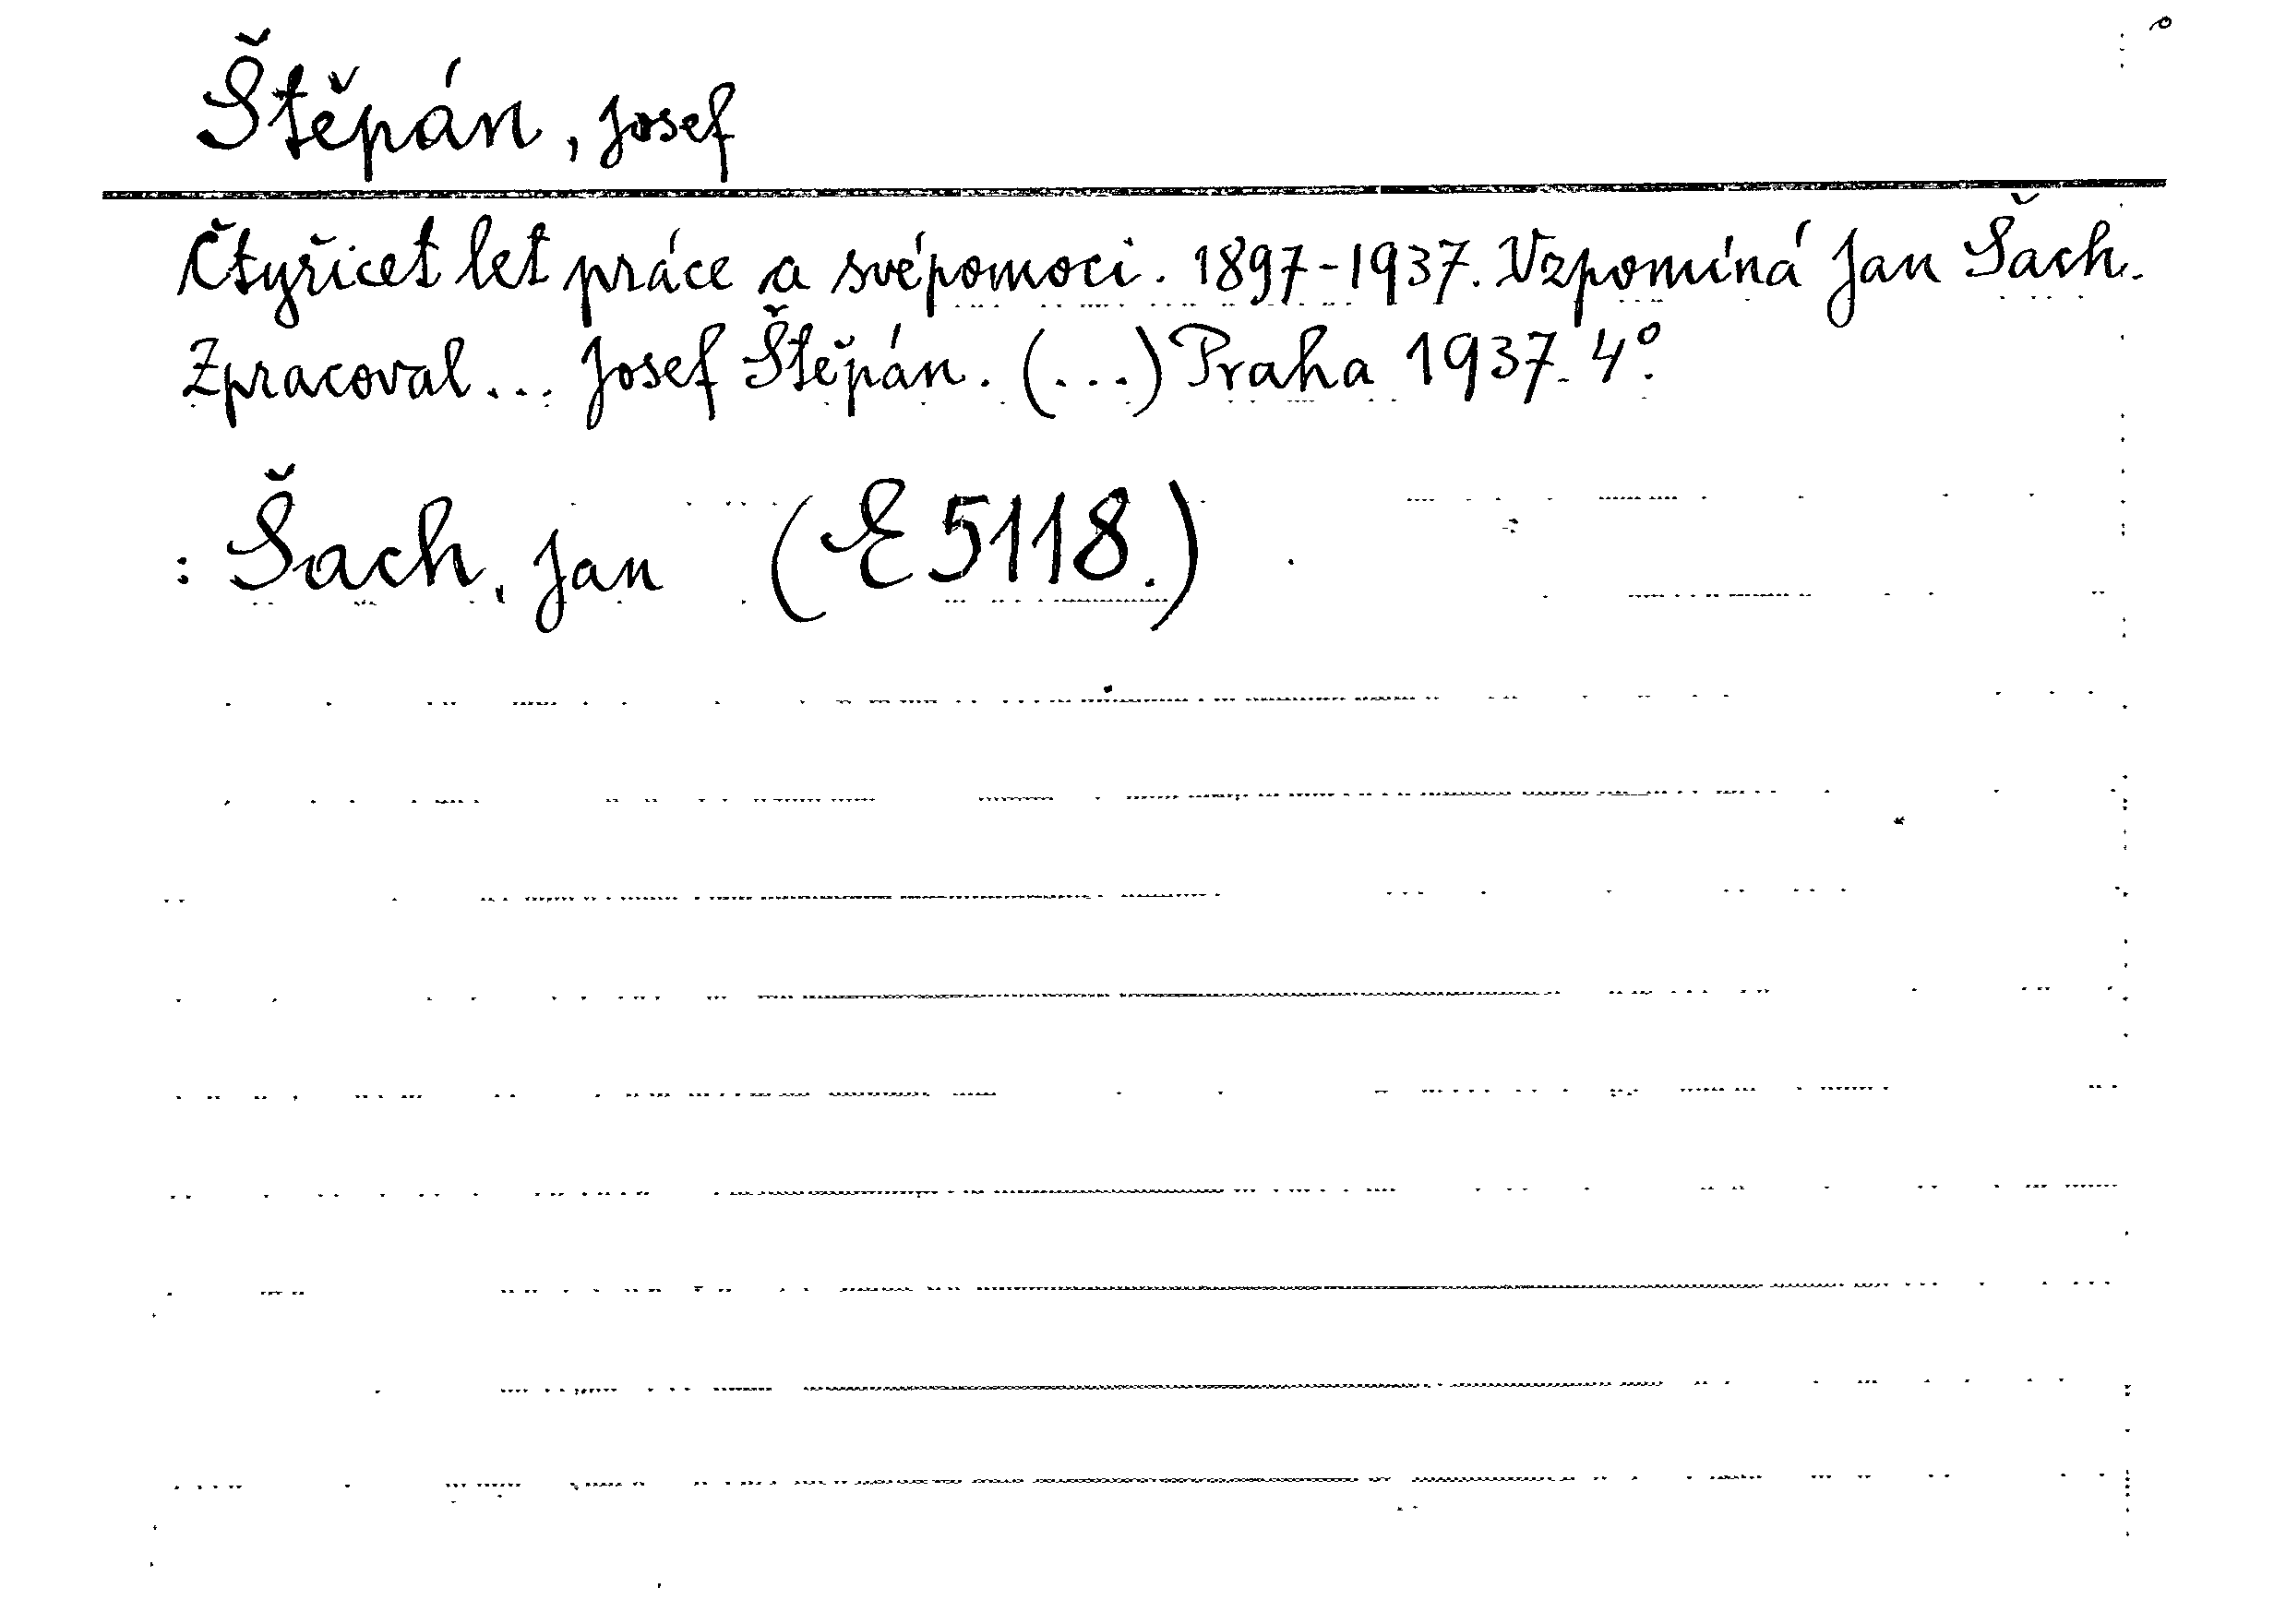 Štěpán, Josef
Čtyřicet let práce a svépomoci. 1897-1937. Vzpomíná Jan Šach.
Zpracoval... Josef Štěpán. (...) Praha 1937. 4°.
: Šach, Jan (E 5118.)